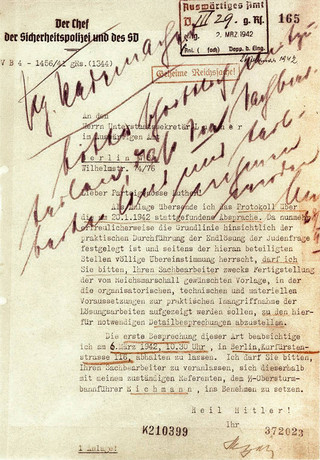 Der Chef
der Sicherheitspolizei und des SD
Auswärtiges Amt
D III 29. g. Rs.
2. MRZ. 1942
165
IV B 4 - 1456/41 gRs. (1344)
Geheime Reichssache!
An den
Herrn Unterstaatssekretär
im Auswärtigen Amt
Berlin
Wilhelmstr. 74/76
Lieber Parteigenosse Luther!
Anlage übersende ich das Protokoll über
die 20.1.1942 stattgefundene Absprache. Da nunmehr
erfreulicherweise die Grundlinie hinsichtlich der
praktischen Durchführung der Endlösung der Judenfrage
festgelegt ist und seitens der hieran beteiligten
Stellen völlige Übereinstimmung herrscht, darf ich
Sie bitten, Ihren Sachbearbeiter zwecks Fertigstellung
der vom Reichsmarschall gewünschten Vorlage, in der
die organisatorischen, technischen und materiellen
Voraussetzungen zur praktischen Inangriffnahme der
Lösungsarbeiten aufgezeigt werden sollen, zu den hier-
für notwendigen Detailbesprechungen abzustellen.
Die erste Besprechung dieser Art beabsichtige
ich am 6. März 1942, 10.30 Uhr, in Berlin, Kurfürsten-
strasse 116, abhalten zu lassen. Ich darf Sie bitten,
Ihren Sachbearbeiter zu veranlassen, sich dieserhalb
mit meinem zuständigen Referenten, dem ᛋᛋ-Obersturm-
bannführer Eichmann, ins Benehmen zu setzen.
Heil Hitler!
Ihr
K210399
372023
1 Anlage!